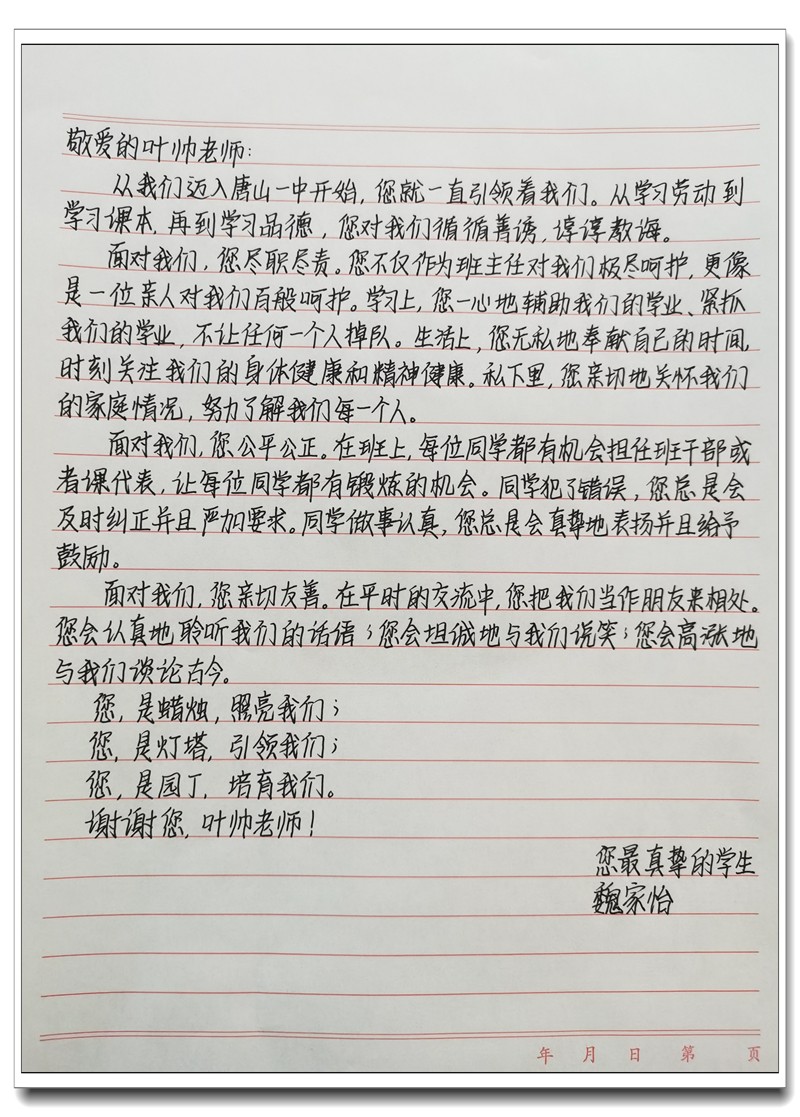 敬爱的叶帅老师：
从我们迈入唐山一中开始，您就一直引领着我们。从学习劳动到
学习课本，再到学习品德，您对我们循循善诱，谆谆教诲。
面对我们，您尽职尽责。您不仅作为班主任对我们极尽呵护，更像
是一位亲人对我们百般呵护。学习上，您一心地辅助我们的学业、紧抓
我们的学业，不让任何一个人掉队。生活上，您无私地奉献自己的时间，
时刻关注我们的身体健康和精神健康。私下里，您亲切地关怀我们
的家庭情况，努力了解我们每一个人。
面对我们，您公平公正。在班上，每位同学都有机会担任班干部或
者课代表，让每位同学都有锻炼的机会。同学犯了错误，您总是会
及时纠正并且严加要求。同学做事认真，您总是会真挚地表扬并且给予
鼓励。
面对我们，您亲切友善。在平时的交流中，您把我们当作朋友来相处。
您会认真地聆听我们的话语；您会坦诚地与我们说笑；您会高涨地
与我们谈论古今。
您，是蜡烛，照亮我们；
您，是灯塔，引领我们；
您，是园丁，培育我们。
谢谢您，叶帅老师！
您最真挚的学生
魏家怡
年 月 日 第 页